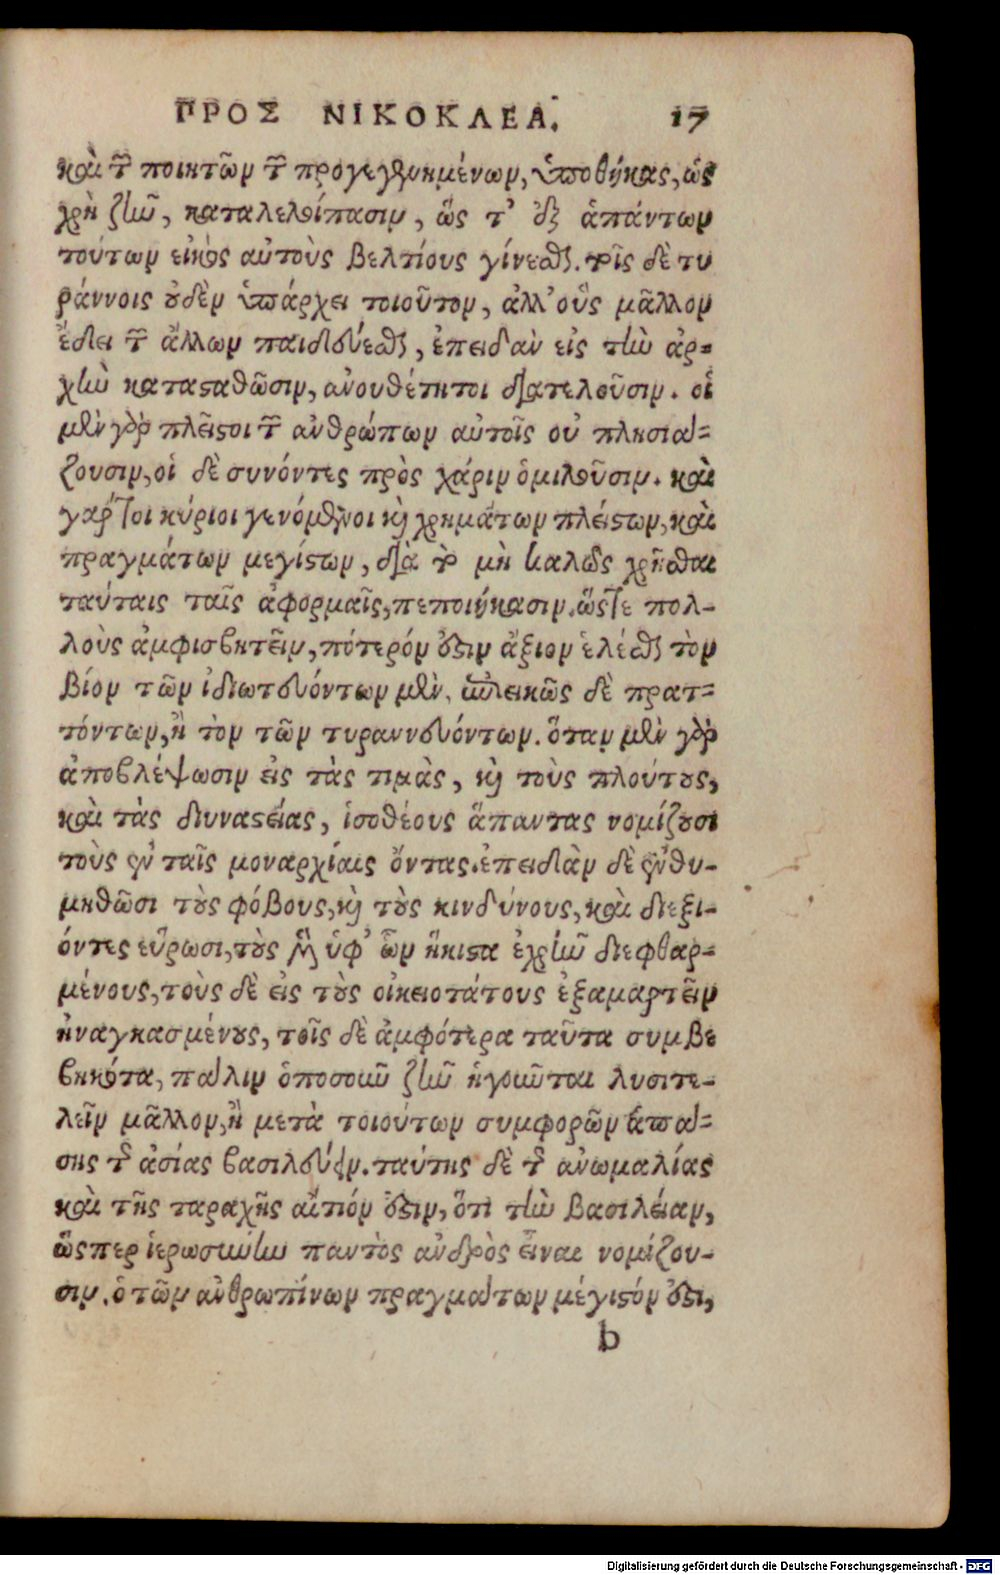 ΠΡΟΣ ΝΙΚΟΚΛΕΑ. 17
καὶ τῶν ποιητῶν τῶν προγεγενημένων, ὑποθήκας, ὡς
χρὴ ζῆν, καταλελοίπασιν, ὥς τ' ἐξ ἁπάντων
τούτων εἰκὸς αὐτοὺς βελτίους γίνεσθαι. τοῖς δὲ τυ
ράννοις οὐδὲν ὑπάρχει τοιοῦτον, ἀλλ' οὓς μᾶλλον
ἔδει τῶν ἄλλων παιδεύεσθαι, ἐπειδὰν εἰς τὴν ἀρ=
χὴν κατασταθῶσιν, ἀνουθέτητοι διατελοῦσιν. οἱ
μὲν γὰρ πλεῖστοι τῶν ἀνθρώπων αὐτοῖς οὐ πλησιά=
ζουσιν, οἱ δὲ συνόντες πρὸς χάριν ὁμιλοῦσιν. καὶ
γάρ τοι κύριοι γενόμενοι καὶ χρημάτων πλείστων, καὶ
πραγμάτων μεγίστων, διὰ τὸ μὴ καλῶς χρῆσθαι
ταύταις ταῖς ἀφορμαῖς, πεποιήκασιν. ὥστε πολ-
λοὺς ἀμφισβητεῖν, πότερόν ἐστιν ἄξιον ἑλέσθαι τὸν
βίον τῶν ἰδιωτευόντων μὲν, ἐπιεικῶς δὲ πρατ=
τόντων, ἢ τὸν τῶν τυραννευόντων. ὅταν μὲν γὰρ
ἀποβλέψωσιν εἰς τὰς τιμὰς, καὶ τοὺς πλούτους,
καὶ τὰς δυναστείας, ἰσοθέους ἅπαντας νομίζουσι
τοὺς ἐν ταῖς μοναρχίαις ὄντας. ἐπειδὰν δὲ ἐνθυ-
μηθῶσι τοὺς φόβους, καὶ τοὺς κινδύνους, καὶ διεξι-
όντες εὕρωσι, τοὺς μὲν ὑφ' ὧν ἥκιστα ἐχρῆν διεφθαρ=
μένους, τοὺς δὲ εἰς τοὺς οἰκειοτάτους ἐξαμαρτεῖν
ἠναγκασμένους, τοῖς δὲ ἀμφότερα ταῦτα συμβε
βηκότα, πάλιν ὁποσοιῶν ζῆν ἡγοιῶται λυσιτε-
λεῖν μᾶλλον, ἢ μετὰ τοιούτων συμφορῶν ἁπά=
σης τῆς ἀσίας βασιλεύειν. ταύτης δὲ τῆς ἀνωμαλίας
καὶ τῆς ταραχῆς αἴτιόν ἐστιν, ὅτι τὴν βασιλείαν,
ὥσπερ ἱερωσύνην παντὸς ἀνδρὸς εἶναι νομίζου-
σιν. ὃ τῶν ἀνθρωπίνων πραγμάτων μέγιστόν ἐστι,
b
Digitalisierung gefördert durch die Deutsche Forschungsgemeinschaft - DFG